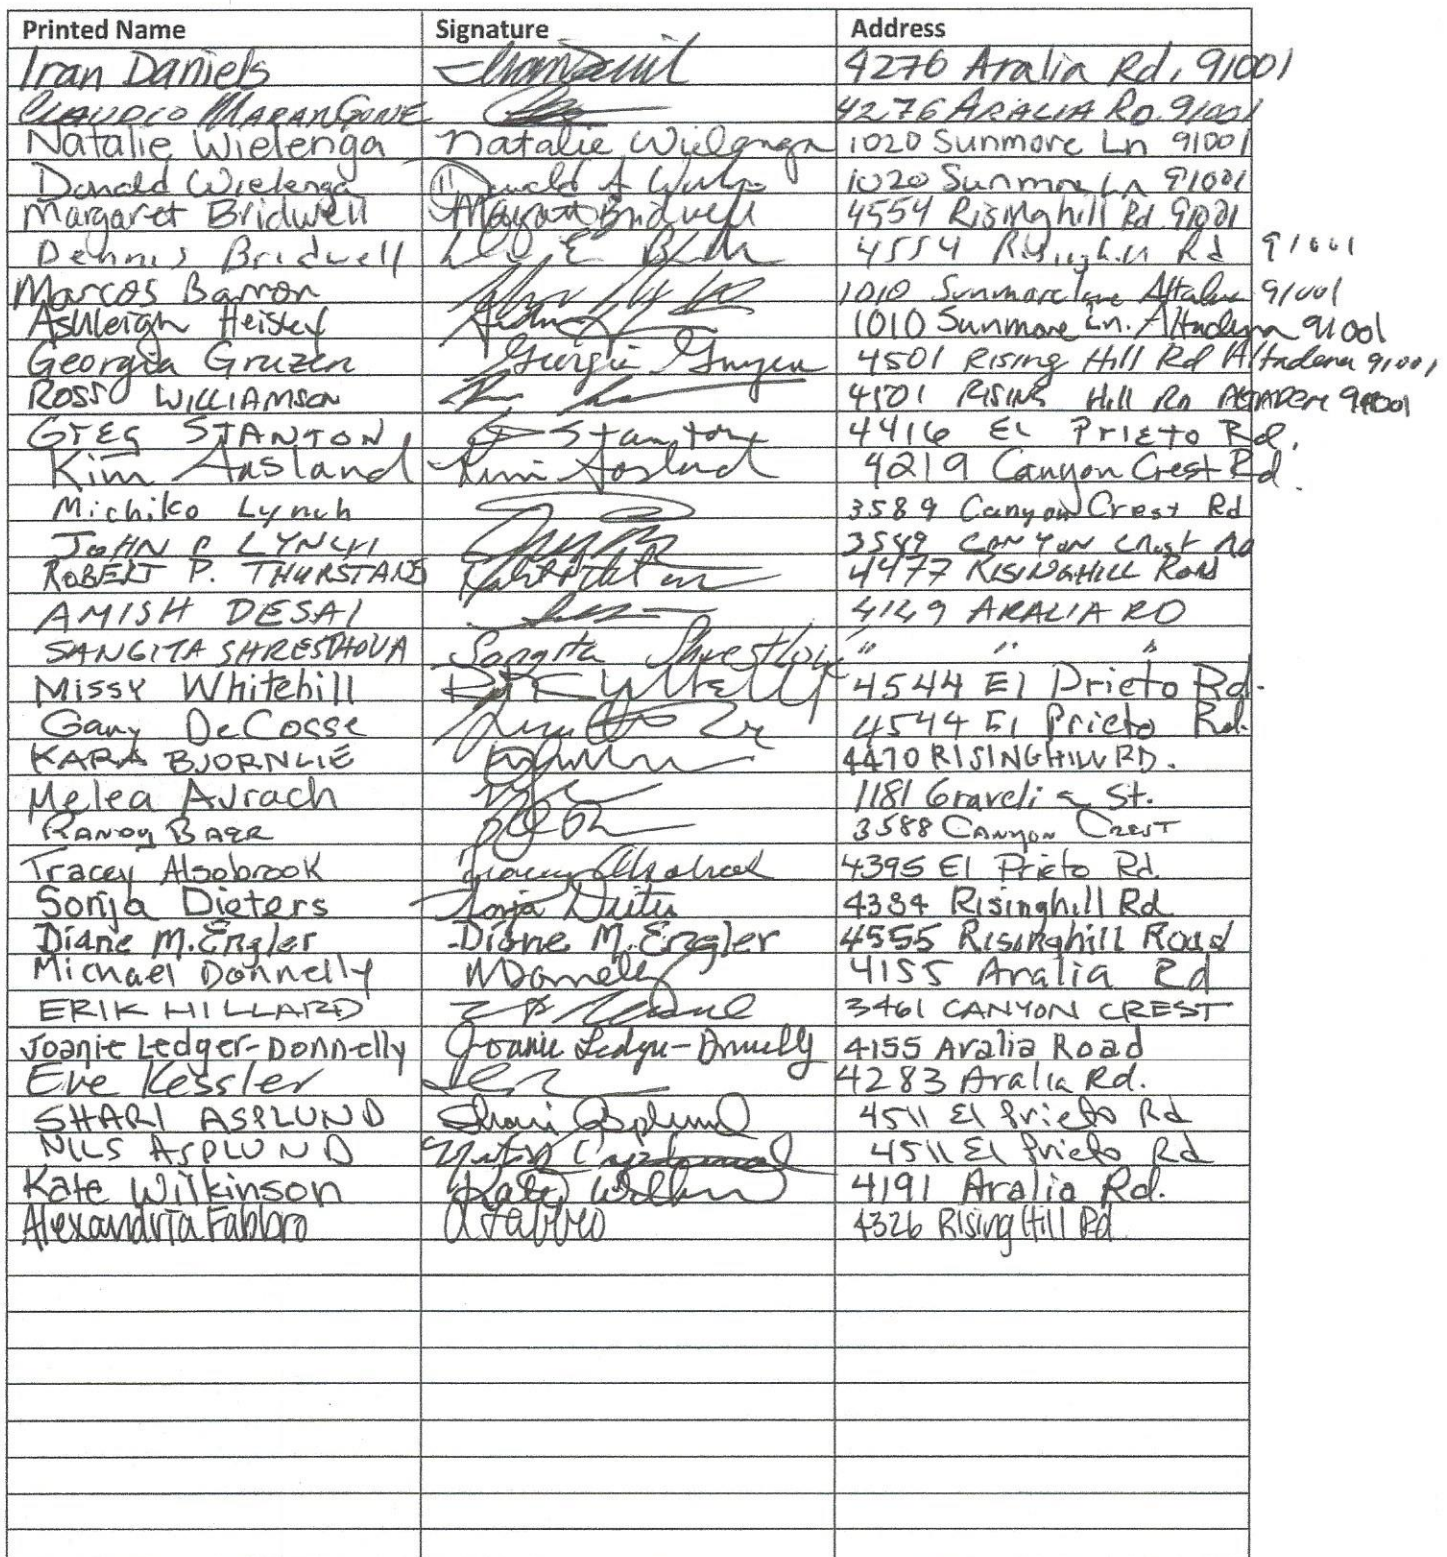 Printed Name Signature Address
Iran Daniels 4276 Aralia Rd, 91001
CLAUDIO MARANGONE 4276 ARALIA RD. 91001
Natalie Wielenga Natalie Wielenga 1020 Sunmore Ln 91001
Donald Wielenga Donald A 1020 Sunmore Ln 91001
Margaret Bridwell Margaret Bridwell 4554 Risinghill Rd. 91001
Dennis Bridwell 4554 Rd 91001
Marcos Barron 1010 Sunmore lane 91001
Ashleigh Heisley 1010 Sunmore Ln. Altadena 91001
Georgia Gruzen Georgia Gruzen 4501 Rising Hill Rd Altadena 91001
ROSS WILLIAMSON 4501 RISING Hill RD 91001
GREG STANTON Stanton 4416 EL PRIETO Rd.
Kim Aasland Kim Aasland 4219 Canyon Crest Rd.
Michiko Lynch 3589 Canyon Crest Rd
JOHN P LYNCH CANYON CREST RD
ROBERT P. THURSTANS 4477 RISINGHILL ROAD
AMISH DESAI 4149 ARALIA RD
SANGITA SHRESTHOVA Sangita Shresthova " " "
Missy Whitehill 4544 El Prieto Rd.
Gary DeCosse 4544 El Prieto Rd.
KARA BJORNLIE 4470 RISINGHILL RD.
Melea Avrach 1181 St.
RANDY BAER 3588 CANYON CREST
Tracey Alsobrook Tracey Alsobrook 4395 El Prieto Rd.
Sonja Dieters Sonja Dieters 4384 Risinghill Rd
Diane M. Engler Diane M. Engler 4555 Risinghill Road
Michael Donnelly MDonnelly 4155 Aralia Rd
ERIK HILLARD 3461 CANYON CREST
Joanie Ledger-Donnelly Joanie Ledger-Donnelly 4155 Aralia Road
Eve Kessler 4283 Aralia Rd.
SHARI ASPLUND Shari Asplund 4511 El Prieto Rd
NILS ASPLUND 4511 El Prieto Rd
Kate Wilkinson Kate 4191 Aralia Rd.
Alexandria Fabbro afabbro 4326 Rising Hill Rd